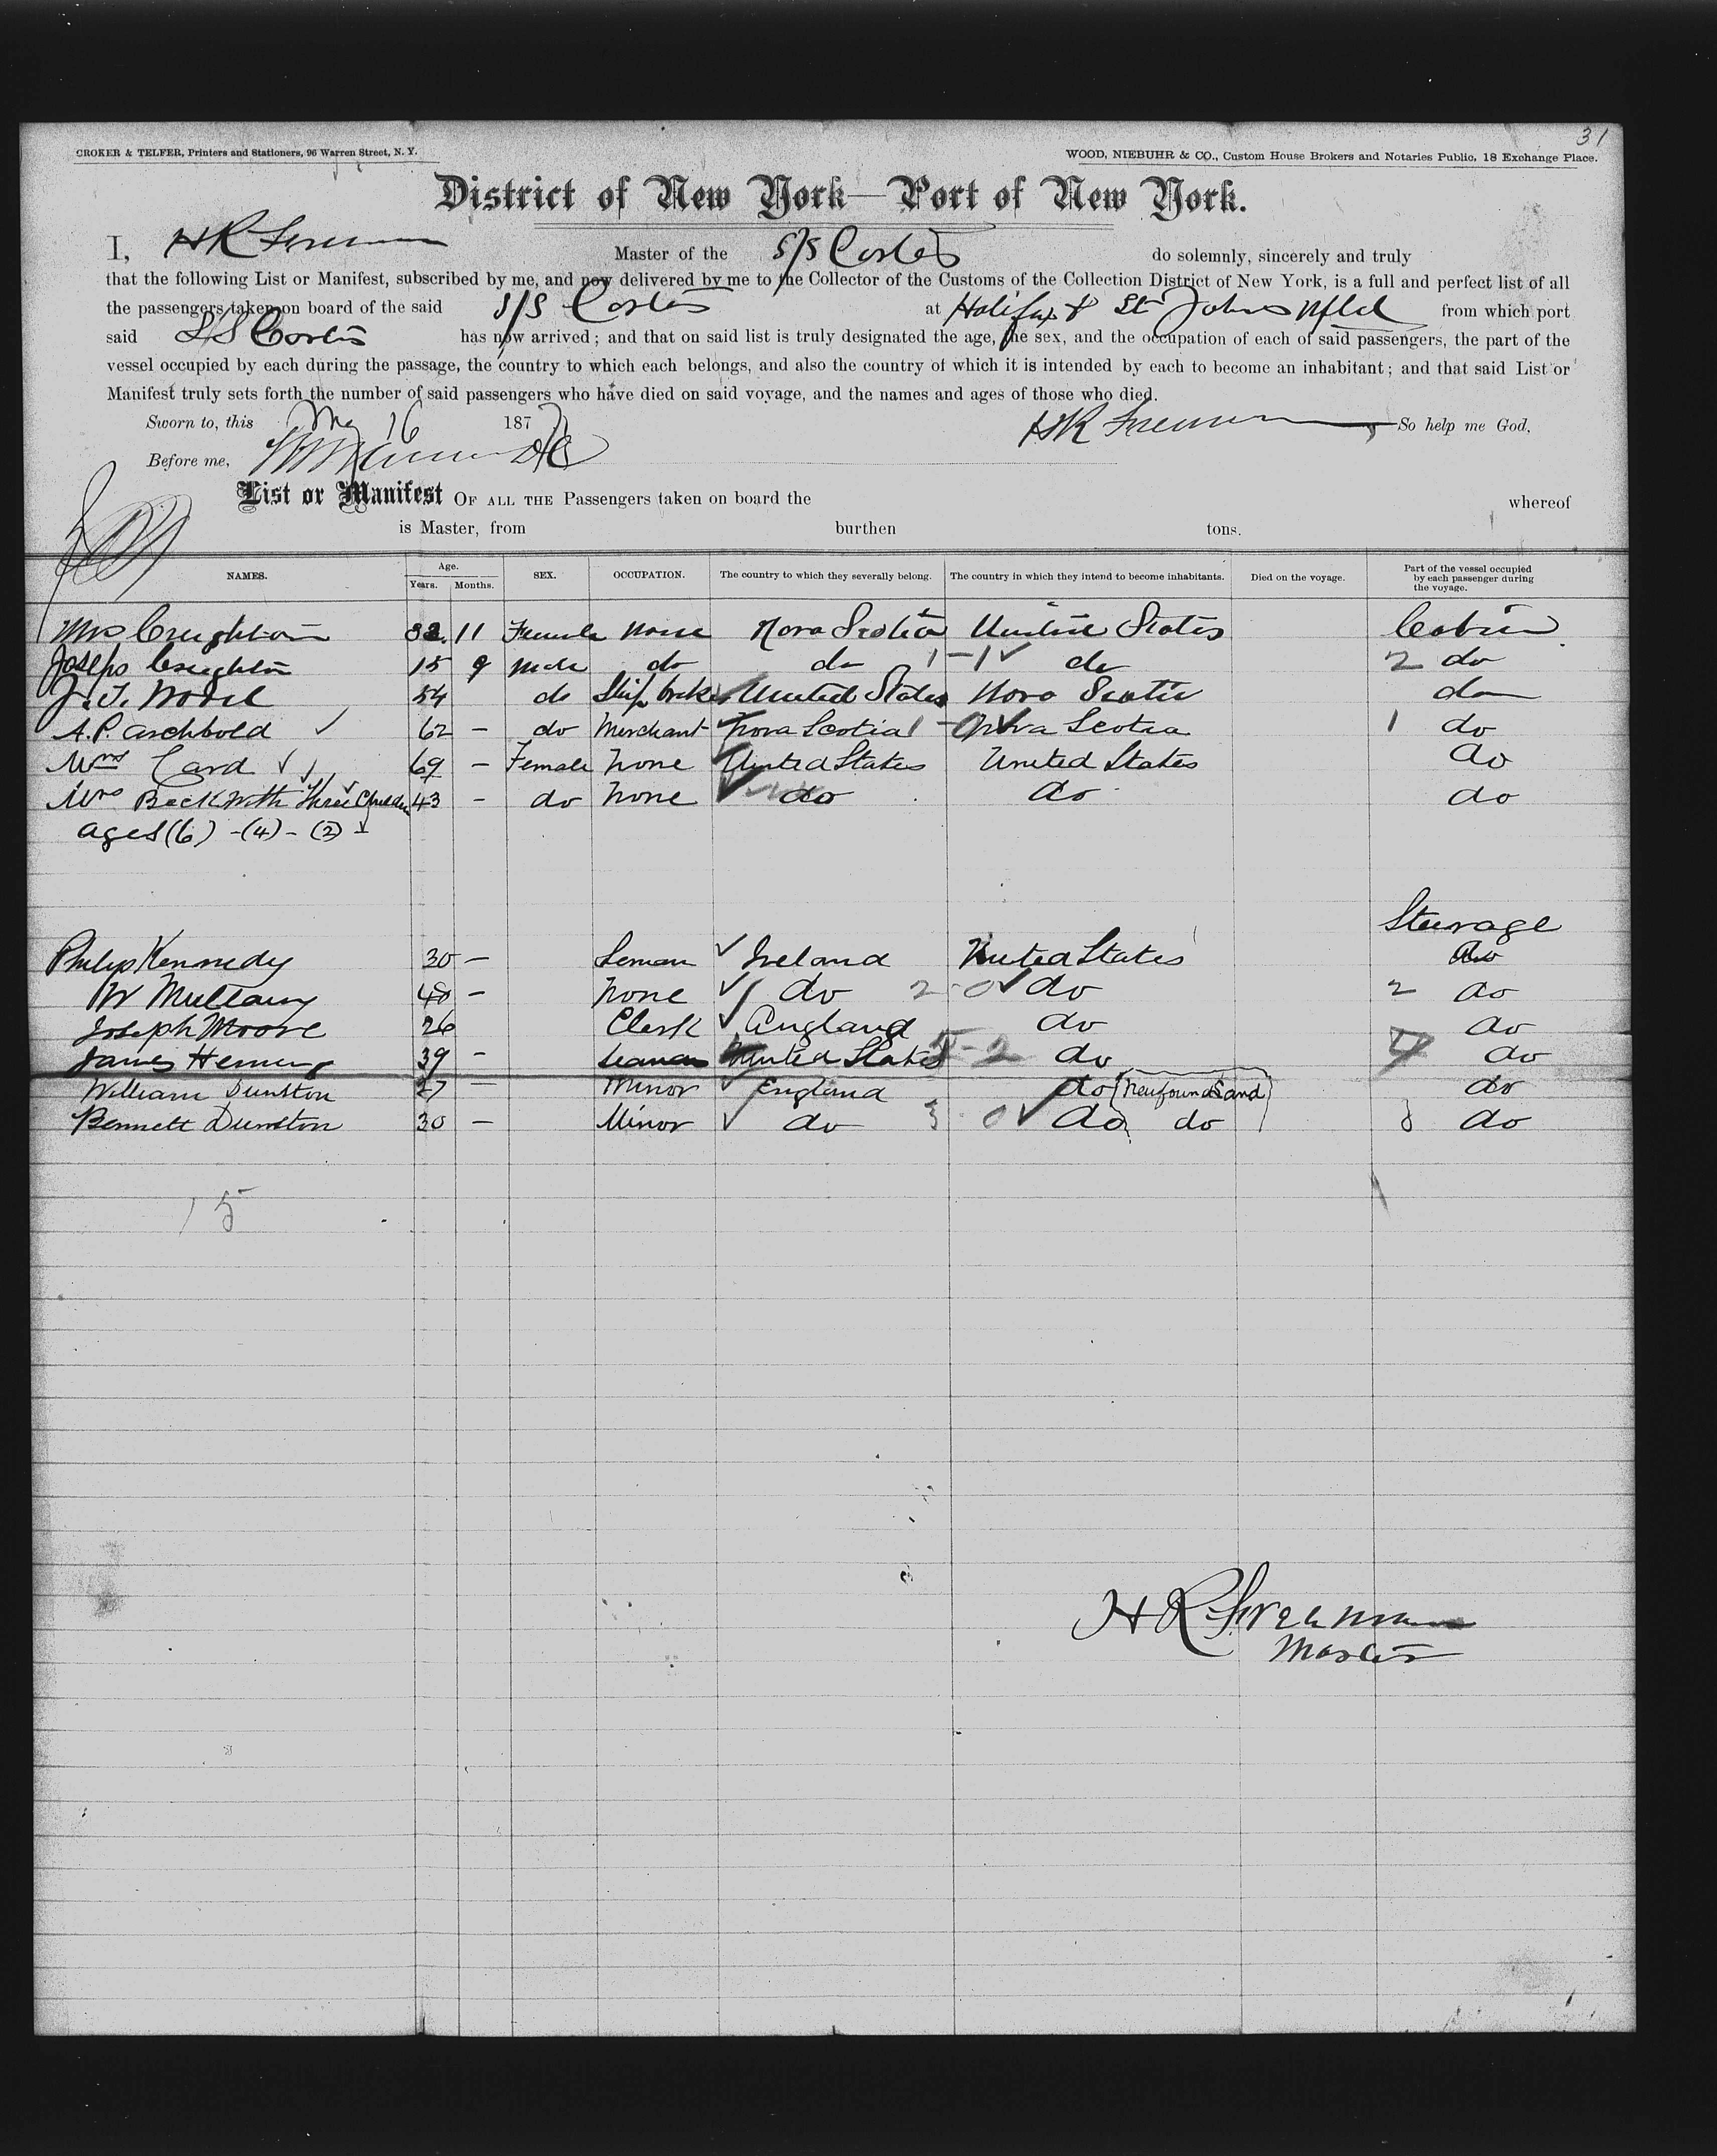 31
CROKER & TELFER, Printers and Stationers, 96 Warren Street, N. Y.
WOOD, NIEBUHR & CO., Custom House Brokers and Notaries Public, 18 Exchange Place.
District of New York—Port of New York.
I, H R Freeman Master of the S/S Cortes do solemnly, sincerely and truly
that the following List or Manifest, subscribed by me, and now delivered by me to the Collector of the Customs of the Collection District of New York, is a full and perfect list of all
the passengers taken on board of the said S/S Cortes at Halifax & St Johns Nfld from which port
said S/S Cortes has now arrived; and that on said list is truly designated the age, the sex, and the occupation of each of said passengers, the part of the
vessel occupied by each during the passage, the country to which each belongs, and also the country of which it is intended by each to become an inhabitant; and that said List or
Manifest truly sets forth the number of said passengers who have died on said voyage, and the names and ages of those who died.
Sworn to, this May 16 187 H R Freeman So help me God,
Before me,
List or Manifest OF ALL THE Passengers taken on board the whereof
is Master, from burthen tons.
NAMES. Age. Years. Months. SEX. OCCUPATION. The country to which they severally belong. The country in which they intend to become inhabitants. Died on the voyage. Part of the vessel occupied by each passenger during the voyage.
Mrs Creighton 11 Female None Nova Scotia United States Cabin
Joseph Creighton 15 9 Male do do 1-1 do 2 do
54 do Ship broker United States Nova Scotia do
A.P. Archbold 62 - do Merchant Nova Scotia 1 - Nova Scotia 1 do
Mrs Card 69 - Female None United States United States do
Mrs Beckwith Three Children 43 - do None do do do
ages (6) - (4) - (2)
Steerage
Philip Kennedy 30 - Seman Ireland United States do
W Mullany 40 - None do 2-0 do 2 do
Joseph Moore 26 Clerk England do do
James Heming 39 - Seaman United States 2 do do
William Dunston 27 - Minor England do Newfoundland do
Bennett Dunston 30 - Minor do 3 0 do do 3 do
15
H R Freeman
Master